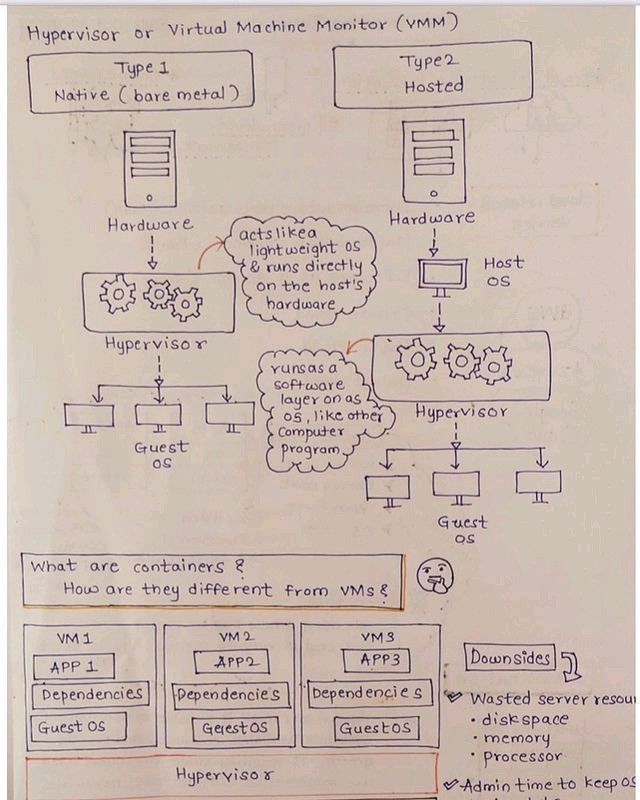 Hypervisor or Virtual Machine Monitor (VMM)
Type 1
Native (bare metal)
Type 2
Hosted
Hardware
acts like a
lightweight OS
& runs directly
on the host's
hardware
Hypervisor
Guest
OS
Hardware
Host
OS
runs as a
software
layer on as
OS, like other
computer
program
Hypervisor
Guest
OS
What are containers &
How are they different from VMs &
VM1
APP 1
Dependencies
Guest OS
VM2
APP2
Dependencies
Guest OS
VM3
APP3
Dependencies
Guest OS
Hypervisor
Downsides
Wasted server resou
• diskspace
• memory
• processor
Admin time to keep OS